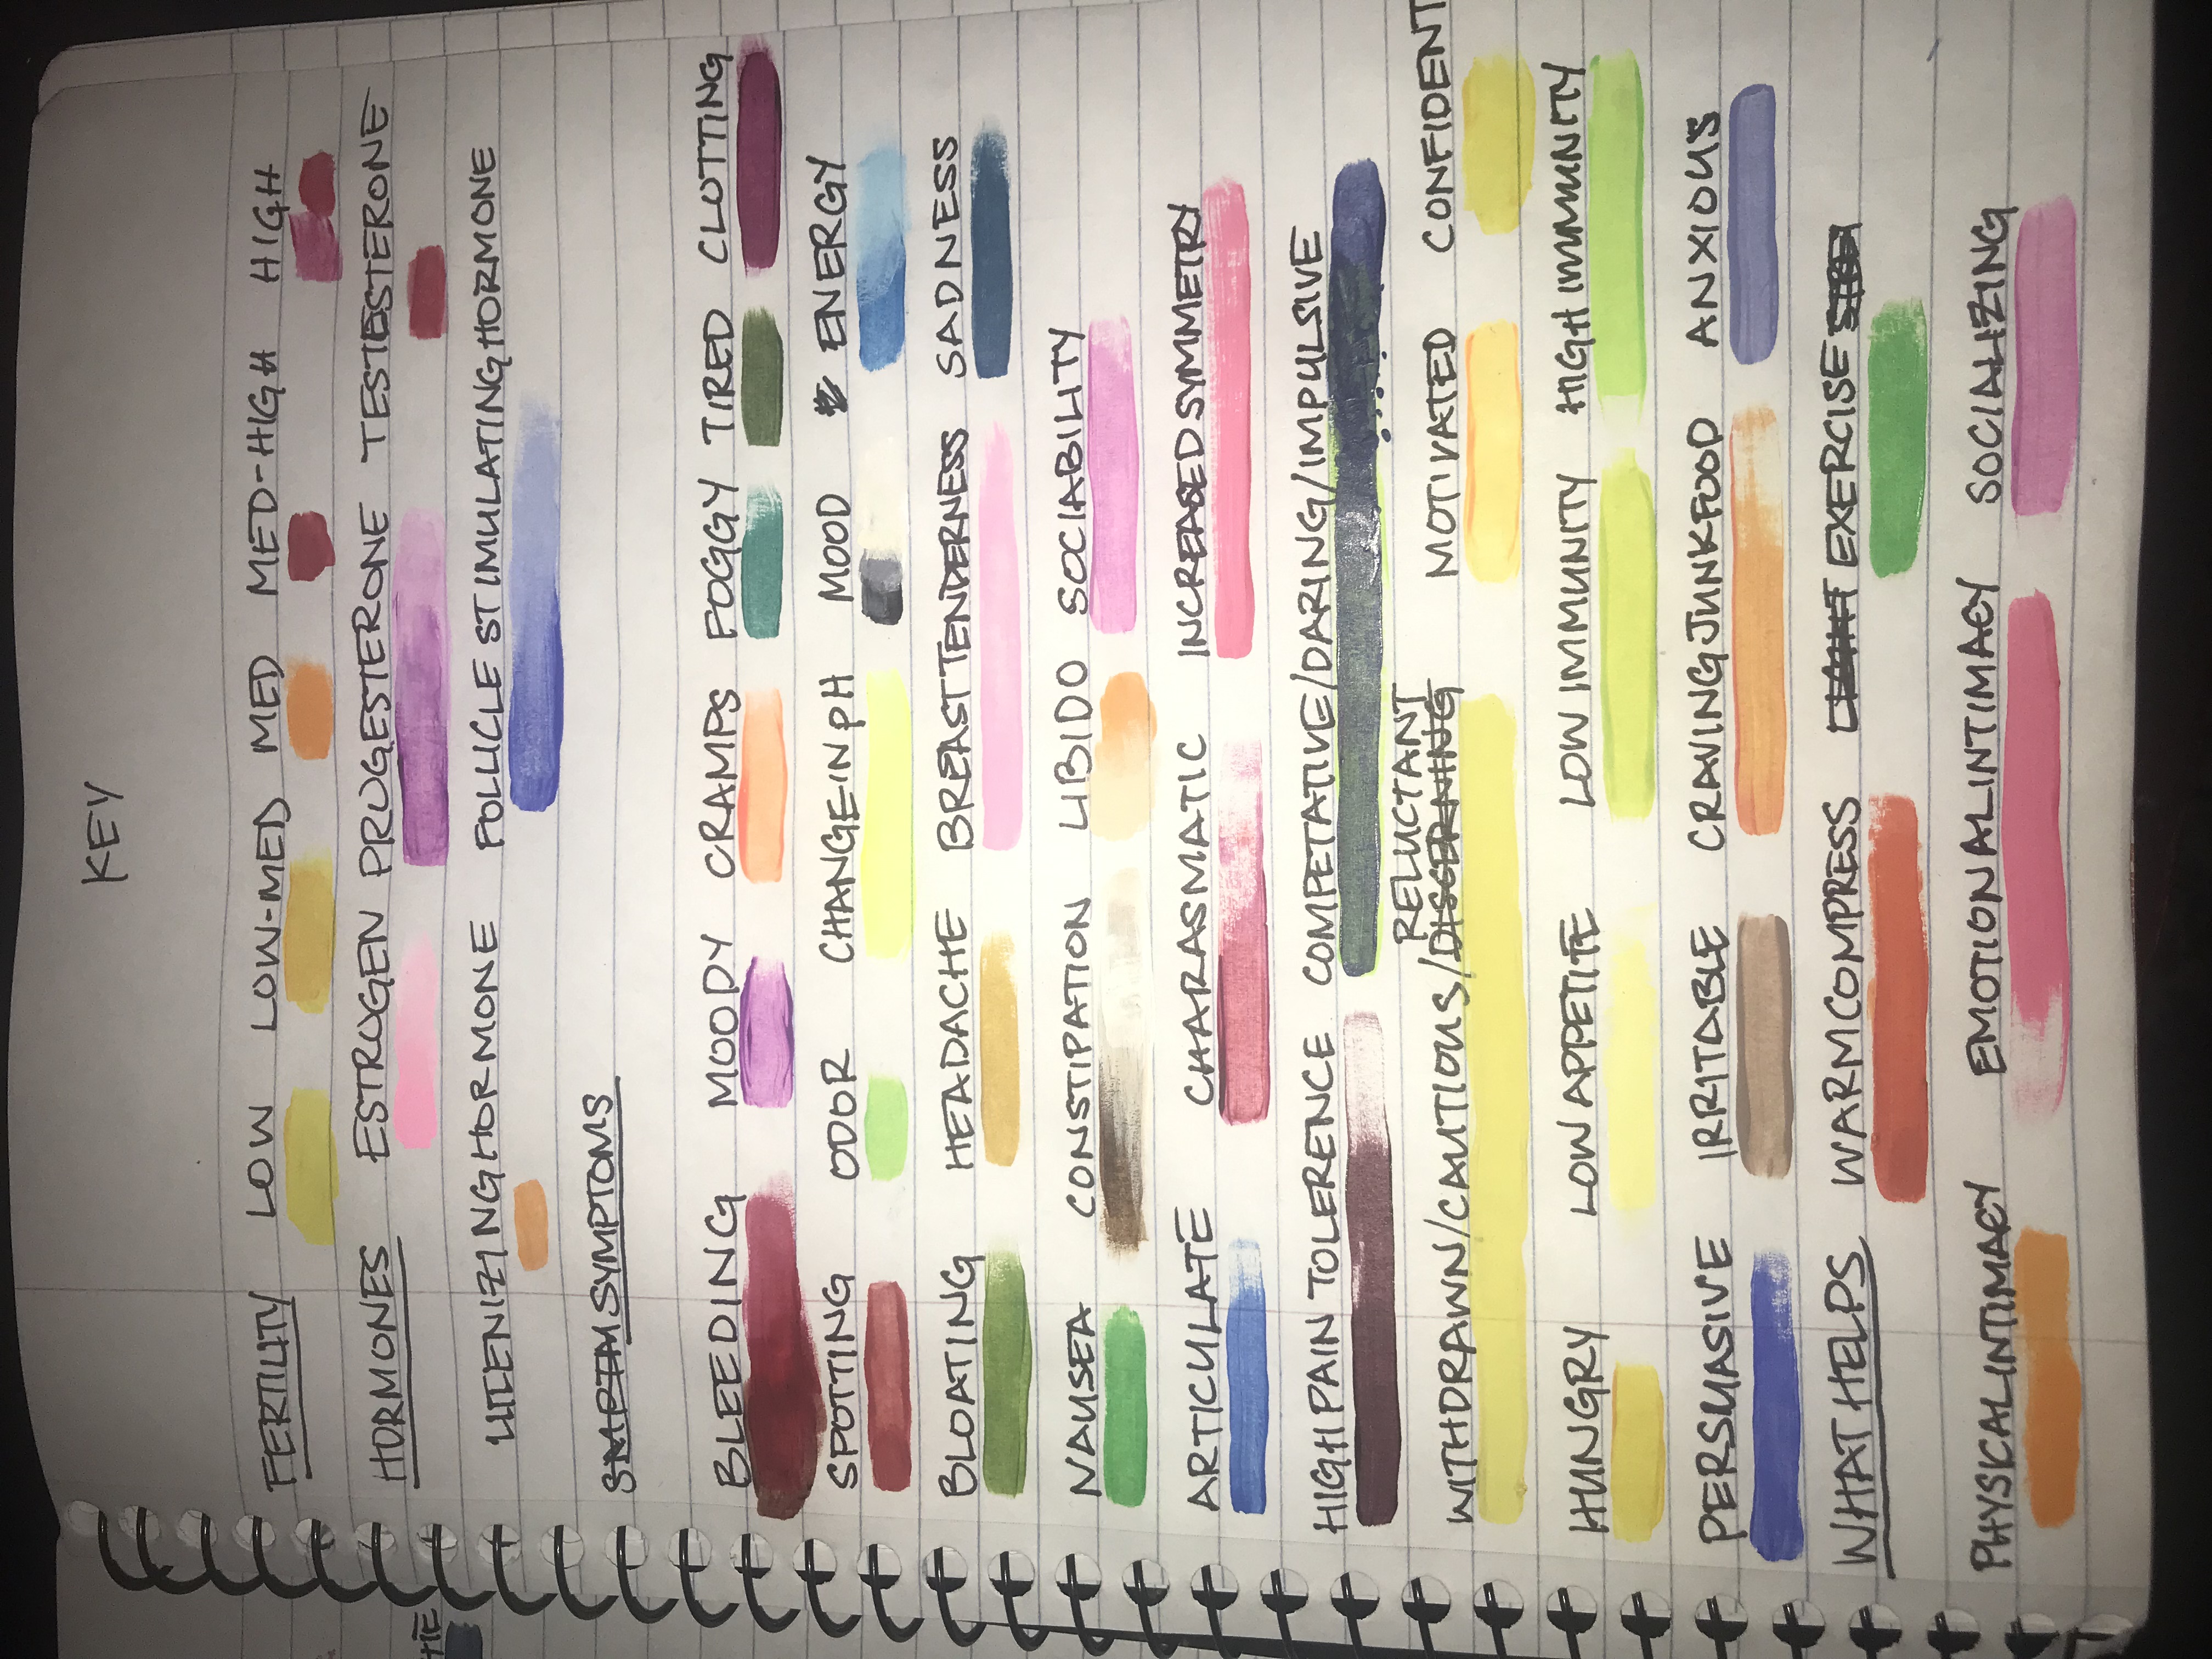 KEY
FERTILITY LOW LOW-MED MED MED-HIGH HIGH
HORMONES ESTROGEN PROGESTERONE TESTESTERONE
LUTENIZING HORMONE FOLLICLE STIMULATING HORMONE
SYMPTOMS
BLEEDING MOODY CRAMPS FOGGY TIRED CLOTTING
SPOTTING ODOR CHANGE IN pH MOOD ENERGY
BLOATING HEADACHE BREAST TENDERNESS SADNESS
NAUSEA CONSTIPATION LIBIDO SOCIABILITY
ARTICULATE CHARASMATIC INCREASED SYMMETRY
HIGH PAIN TOLERENCE COMPETATIVE/DARING/IMPULSIVE
RELUCTANT
WITHDRAWN/CAUTIOUS/DISCERNING MOTIVATED CONFIDENT
HUNGRY LOW APPETITE LOW IMMUNITY HIGH IMMUNITY
PERSUASIVE IRRITABLE CRAVING JUNK FOOD ANXIOUS
WHAT HELPS WARM COMPRESS LIGHT EXERCISE
PHYSICAL INTIMACY EMOTIONAL INTIMACY SOCIALIZING